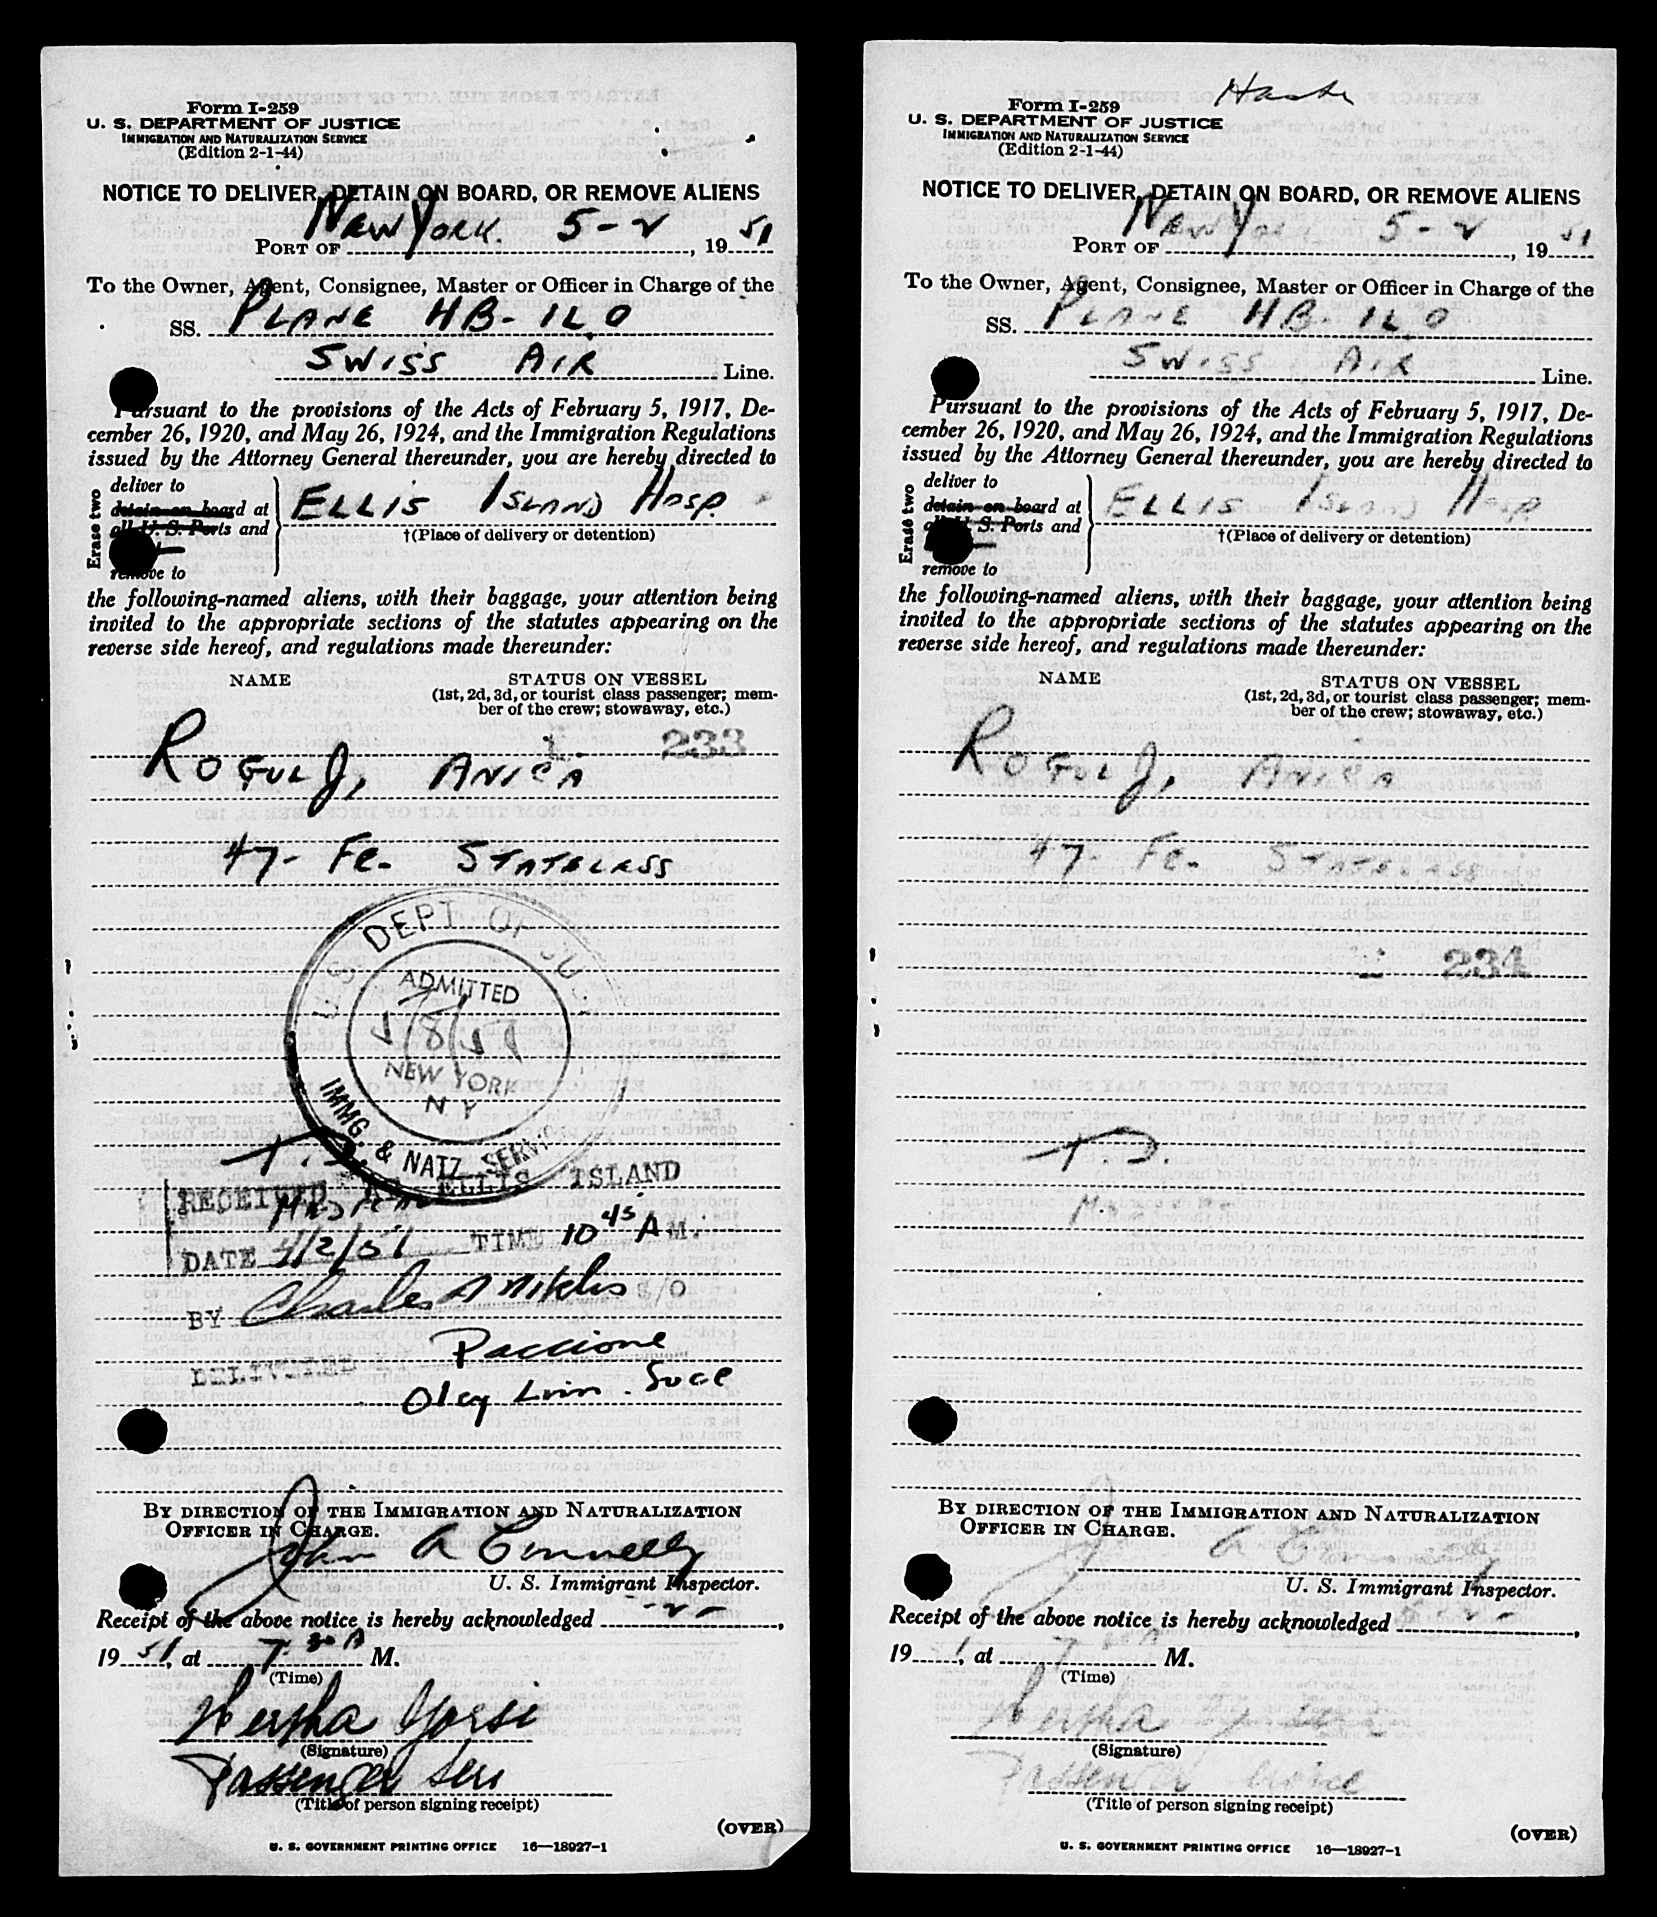 Form I-259
U. S. DEPARTMENT OF JUSTICE
IMMIGRATION AND NATURALIZATION SERVICE
(Edition 2-1-44)
NOTICE TO DELIVER, DETAIN ON BOARD, OR REMOVE ALIENS
PORT OF New York. 5-2, 1951
To the Owner, Agent, Consignee, Master or Officer in Charge of the
SS. PLANE HB-ILO
SWISS AIR Line.
Pursuant to the provisions of the Acts of February 5, 1917, De-
cember 26, 1920, and May 26, 1924, and the Immigration Regulations
issued by the Attorney General thereunder, you are hereby directed to
Erase two
deliver to
detain on board at
all U. S. Ports and
remove to
ELLIS ISLAND HOSP.
†(Place of delivery or detention)
the following-named aliens, with their baggage, your attention being
invited to the appropriate sections of the statutes appearing on the
reverse side hereof, and regulations made thereunder:
NAME STATUS ON VESSEL
(1st, 2d, 3d, or tourist class passenger; mem-
ber of the crew; stowaway, etc.)
233
ROGULJ, ANICA
47- Fe- STATELESS
U.S. DEPT. OF JUST.
ADMITTED
5/8/51
NEW YORK
N Y
IMMG. & NATZ. SERVICE
T.D.
RECEIVED AT ELLIS ISLAND
DATE 5/2/51 TIME 10 45 A M.
BY Charles A
DELIVERED
Paccione
By direction of the Immigration and Naturalization
Officer in Charge.
John A Connelly
U. S. Immigrant Inspector.
Receipt of the above notice is hereby acknowledged -2-,
1951, at 7.30 A M.
(Time)
(Signature)
Passenger
(Title of person signing receipt)
(OVER)
U. S. GOVERNMENT PRINTING OFFICE 16—18927-1
Form I-259
U. S. DEPARTMENT OF JUSTICE
IMMIGRATION AND NATURALIZATION SERVICE
(Edition 2-1-44)
NOTICE TO DELIVER, DETAIN ON BOARD, OR REMOVE ALIENS
PORT OF New York 5-2, 1951
To the Owner, Agent, Consignee, Master or Officer in Charge of the
SS. PLANE HB-ILO
SWISS AIR Line.
Pursuant to the provisions of the Acts of February 5, 1917, De-
cember 26, 1920, and May 26, 1924, and the Immigration Regulations
issued by the Attorney General thereunder, you are hereby directed to
Erase two
deliver to
detain on board at
all U. S. Ports and
remove to
ELLIS ISLAND HOSP
†(Place of delivery or detention)
the following-named aliens, with their baggage, your attention being
invited to the appropriate sections of the statutes appearing on the
reverse side hereof, and regulations made thereunder:
NAME STATUS ON VESSEL
(1st, 2d, 3d, or tourist class passenger; mem-
ber of the crew; stowaway, etc.)
ROGULJ, ANICA
47- Fe- STATELESS
234
T.D.
By direction of the Immigration and Naturalization
Officer in Charge.
U. S. Immigrant Inspector.
Receipt of the above notice is hereby acknowledged 5-2-,
1951, at 7 30 A M.
(Time)
(Signature)
Passenger
(Title of person signing receipt)
(OVER)
U. S. GOVERNMENT PRINTING OFFICE 16—18927-1